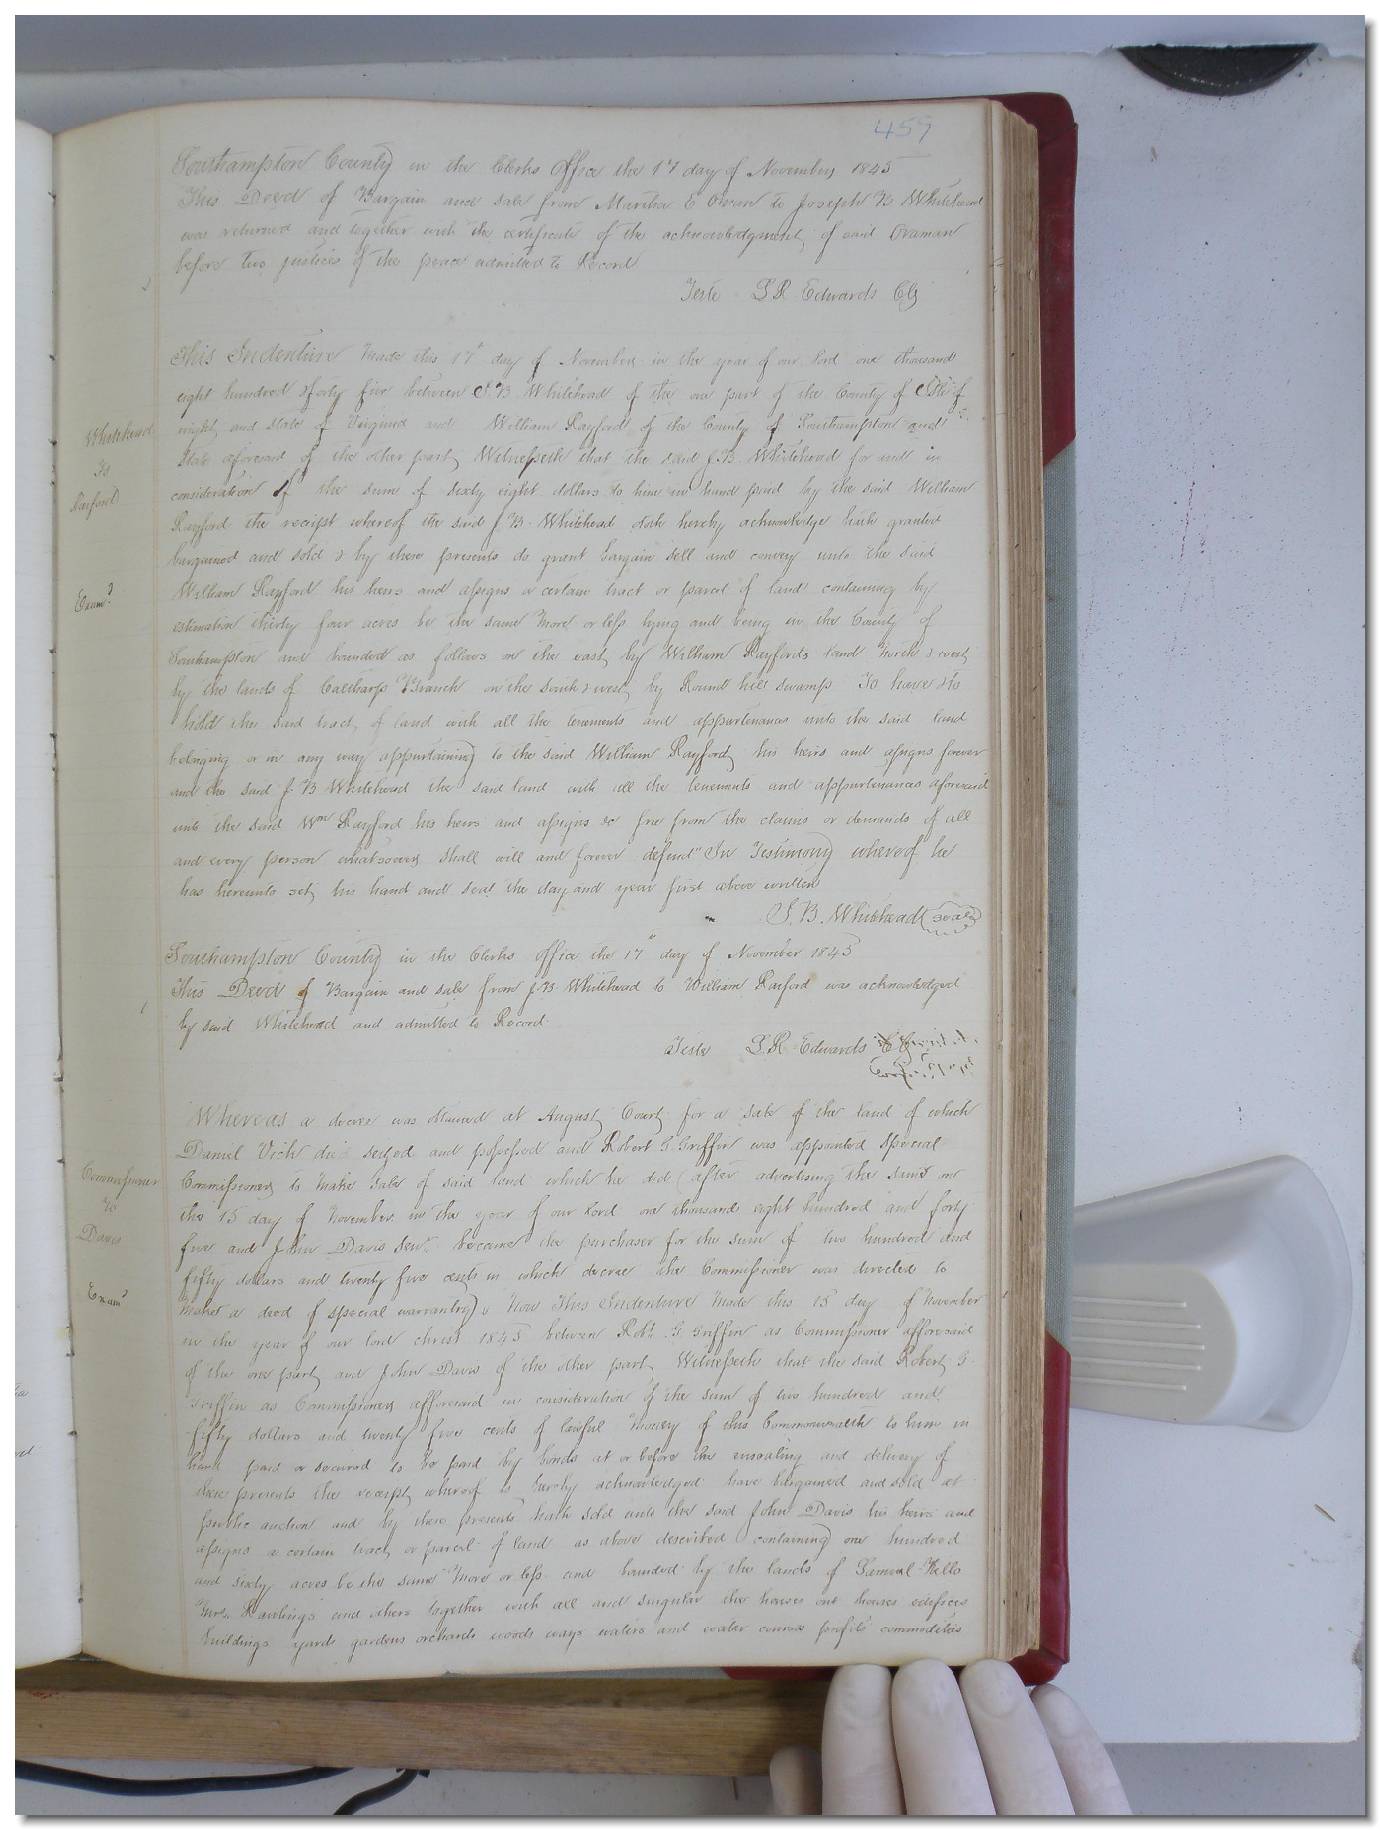 459
Southampton County in the Clerks office the 17 day of November 1845
This Deed of Bargain and sale from Martha E to Joseph B Whitehead
was returned and together with the certificate of the acknowledgment of said
before two justices of the peace admitted to Record
Teste L R Edwards Clk
This Indenture made this 17th day of November in the year of our lord one thousand
eight hundred & forty five between J. B Whitehead of the one part of the County of Isle of
wight and State of Virginia and William Rayford of the County of Southampton and
Whitehead
State aforesaid of the other part Witnesseth that the said J. B. Whitehead for and in
To
consideration of the sum of sixty eight dollars to him in hand paid by the said William
Raiford
Rayford the receipt whereof the said J. B. Whitehead doth hereby acknowledge hath granted
bargained and sold & by these presents do grant bargain sell and convey unto the said
William Rayford his heirs and assigns a certain tract or parcel of land containing by
Examd
estimation thirty four acres be the same more or less lying and being in the County of
Southampton and bounded as follows on the east by William Rayfords land North & west
by the lands of Branch on the South & west by Round hill swamp To have & to
hold the said tract of land with all the tenements and appurtenances unto the said land
belonging or in any way appurtaining to the said William Rayford his heirs and assigns forever
and the said J. B Whitehead the said land with all the tenements and appurtenances aforesaid
unto the said Wm Rayford his heirs and assigns &c free from the claims or demands of all
and every person whatsoever shall will and forever defend" In Testimony whereof he
has hereunto set his hand and seal the day and year first above written
J. B. Whitehead (seal)
Southampton County in the Clerks office the 17th day of November 1845
This Deed of Bargain and sale from J. B. Whitehead to William Raiford was acknowledged
by said Whitehead and admitted to Record.
Teste L. R. Edwards Clk
Whereas a decree was obtained at August Court for a sale of the land of which
Daniel Vick died seized and possessed and Robert G Griffin was appointed Special
Commissioner
Commissioner to make sale of said land which he did (after advertising the same on
To
the 15 day of November in the year of our Lord one thousand eight hundred and forty
Davis
five and John Davis Senr. became the purchaser for the sum of two hundred and
fifty dollars and twenty five cents in which decree the Commissioner was directed to
Examd
make a deed of special warrantry) Now This Indenture made this 15 day of November
in the year of our lord christ 1845 between Robt. G. Griffin as Commissioner afforesaid
of the one part and John Davis of the other part Witnesseth that the said Robert G.
Griffin as Commissioner afforesaid in consideration of the sum of two hundred and
fifty dollars and twenty five cents of lawful money of this Commonwealth to him in
hand paid or secured to be paid by bonds at or before the ensealing and delivery of
these presents the receipt whereof is hereby acknowledged have bargained and sold at
public auction and by these presents hath sold unto the said John Davis his heirs and
assigns a certain tract or parcel of land as above described containing one hundred
and sixty acres be the same more or less and bounded by the lands of Samuel Kello
Rawlings and others together with all and singular the houses out houses edifices
buildings yards gardens orchards woods ways waters and water courses profits commodities